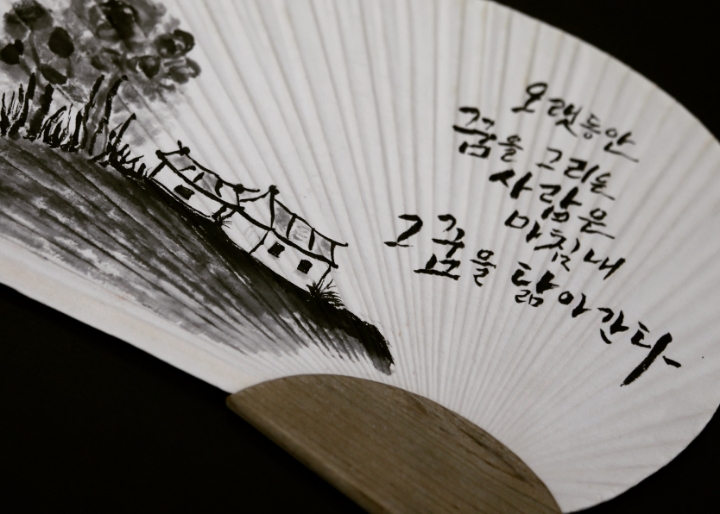 오랫동안
꿈을 그리는
사람은
마침내
그 꿈을 닮아 간다